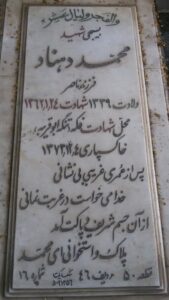 والفجر و لیال عشر
بسیجی شهید
محمد دهناد
فرزند ناصر
ولادت ۱۳۳۹ شهادت ۱۳۶۲/۱/۲۴
محل شهادت فکه تنگ ابوقریب
خاکسپاری ۱۳۷۳/۲/۴
پس از عمری غریبی بی نشانی
خدا می خواست در غربت نمانی
از آن جسم شریف و پاکت آمد
پلاک و استخوانی ای محمد
قطعه ۵۰ ردیف ۴۶ شماره ۱۶